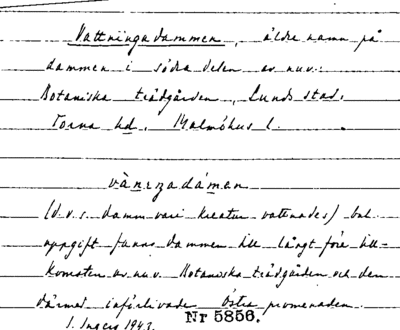 Vattningadammen, äldre namn på
dammen i södra delen av nuv.
Botaniska trädgården, Lunds stad,
Torna hd, Malmöhus l.
(d.v.s. damm vari kreatur vattnades) enl.
uppgift fanns dammen till långt före till-
komsten av nuv. Botaniska trädgården och den
därmed införlivade Östra promenaden.
I. Ingers 1943.
Nr 5856.